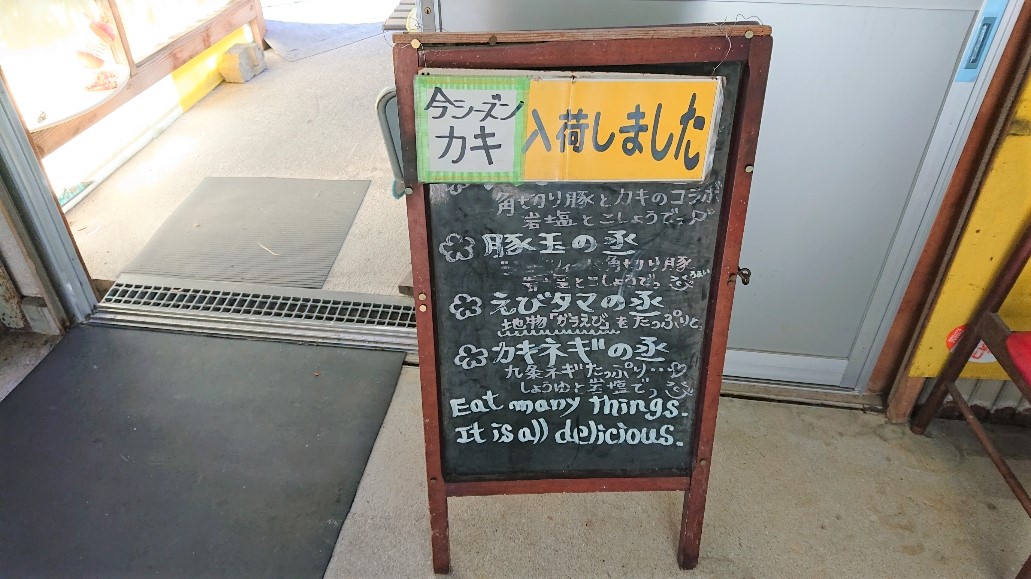 今シーズン
カキ
入荷しました
角切り豚とカキのコラボ
岩塩とこしょうでっ
豚玉の丞
角切り豚
岩塩とこしょうでっ
えびタマの丞
地物「ガラえび」をたっぷりと
カキネギの丞
九条ネギたっぷり…
しょうゆと岩塩でっ
Eat many things.
It is all delicious.